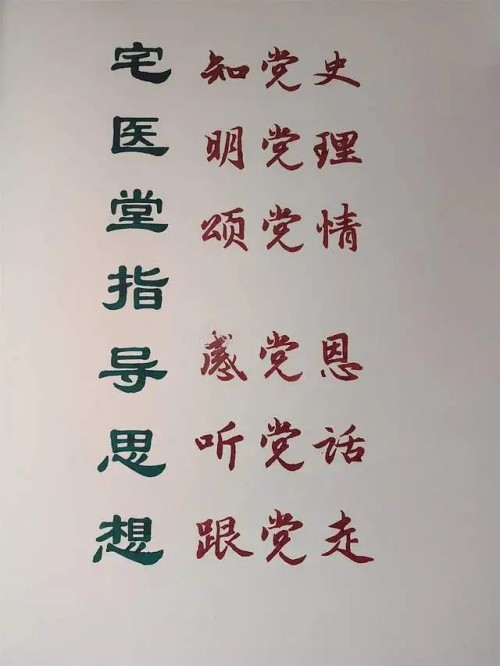 宅医堂指导思想
知党史
明党理
颂党情
感党恩
听党话
跟党走